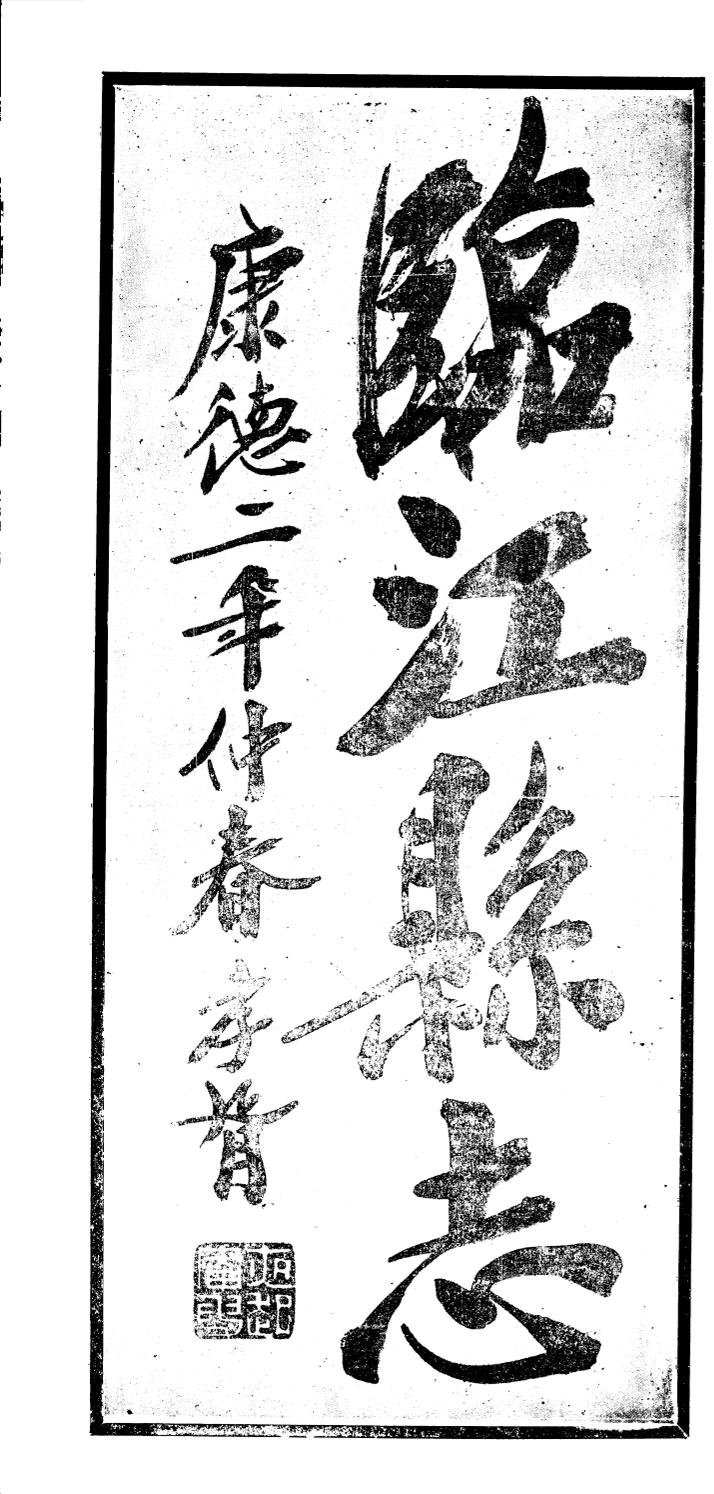 臨江縣志
康德二年仲春孝胥